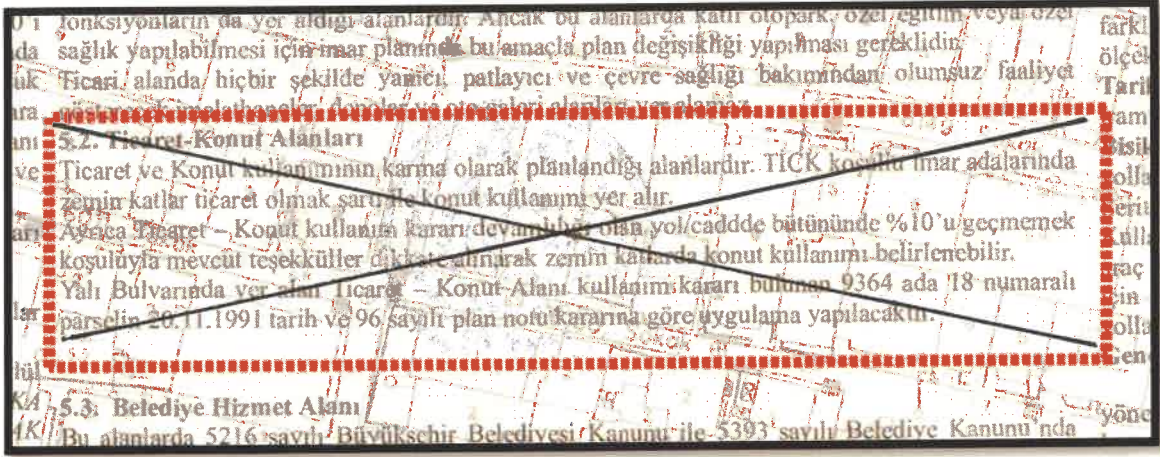 fonksiyonların da yer aldığı alanlardır. Ancak bu alanlarda katlı otopark, özel eğitim veya özel
sağlık yapılabilmesi için imar planında bu amaçla plan değişikliği yapılması gereklidir.
Ticari alanda hiçbir şekilde yanıcı, patlayıcı ve çevre sağlığı bakımından olumsuz faaliyet
5.2. Ticaret-Konut Alanları
Ticaret ve Konut kullanımının karma olarak planlandığı alanlardır. TİCK koşullu imar adalarında
zemin katlar ticaret olmak şartı ile konut kullanımı yer alır.
Ayrıca Ticaret – Konut kullanım kararı devamlılığı olan yol/caddde bütününde %10'u geçmemek
koşuluyla mevcut teşekküller dikkate alınarak zemin katlarda konut kullanımı belirlenebilir.
Yalı Bulvarında yer alan Ticaret – Konut Alanı kullanım kararı bulunan 9364 ada 18 numaralı
parselin 20.11.1991 tarih ve 96 sayılı plan notu kararına göre uygulama yapılacaktır.
5.3. Belediye Hizmet Alanı
Bu alanlarda 5216 sayılı Büyükşehir Belediyesi Kanunu ile 5393 sayılı Belediye Kanunu'nda